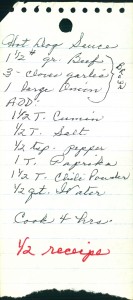 Hot Dog Sauce
1 1/2 # gr. Beef
3 - Cloves garlic
1 large Onion
ADD:
1 1/2 T. Cumin
1/2 T. Salt
1/2 tsp. pepper
1 T. Paprika
1 1/2 T. Chili Powder
1/2 qt. Water
Cook 4 hrs
1/2 receipe